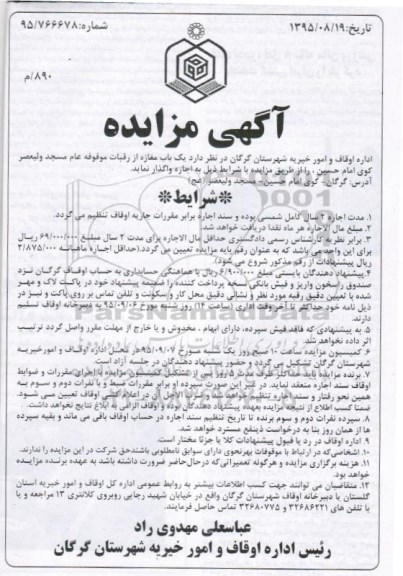 تاریخ: ۱۳۹۵/۰۸/۱۹
شماره: ۹۵/۷۶۶۶۷۸
۸۹۰/م
آگهی مزایده
اداره اوقاف و امور خیریه شهرستان گرگان در نظر دارد یک باب مغازه از رقبات موقوفه عام مسجد ولیعصر
کوی امام حسین، را از طریق مزایده با شرایط ذیل به اجاره واگذار نماید.
آدرس: گرگان - کوی امام حسین - مسجد ولیعصر (عج)
*شرایط*
۱. مدت اجاره ۲ سال کامل شمسی بوده و سند اجاره برابر مقررات جاریه اوقاف تنظیم می گردد.
۲. مبلغ مال الاجاره هر ماه نقدا دریافت خواهد شد.
۳. برابر نظریه کارشناس رسمی دادگستری حداقل مال الاجاره برای مدت ۲ سال مبلغ ۶۹/۰۰۰/۰۰۰ ریال
برای این واحد می باشد که به عنوان رقم پایه مزایده تعیین می گردد. (حداقل اجاره ماهیانه ۲/۸۷۵/۰۰۰
ریال پیشنهادات از رقم مذکور شروع می شود)
۴. پیشنهاد دهندگان بایستی مبلغ ۶/۹۰۰/۰۰۰ ریال با هماهنگی حسابداری به حساب اوقاف گرگان نزد
صندوق واریز و فیش بانکی نسخه پرداخت کننده را ضمیمه پیشنهاد خود در پاکت لاک و مهر
شده با تعیین دقیق رقبه مورد نظر و نشانی دقیق محل کار و سکونت و تلفن تماس بر روی پاکت و نیز در
ذیل نامه خود حداکثر تا آخر وقت اداری ساعت ۱۴ روز شنبه مورخ ۹۵/۰۹/۰۶ به دبیرخانه اوقاف تسلیم
دارند.
۵. به پیشنهادی که فاقد فیش سپرده، دارای ابهام، مخدوش و یا خارج از مهلت مقرر واصل گردد ترتیب
اثر داده نخواهد شد.
۶. کمیسیون مزایده ساعت ۱۰ صبح روز یک شنبه مورخ ۹۵/۰۹/۰۷ در محل اداره اوقاف و امور خیریه
شهرستان گرگان تشکیل می گردد و حضور پیشنهاد دهندگان در جلسه آزاد است.
۷. برنده مزایده باید حداکثر ظرف مدت از تشکیل کمیسیون مزایده با اجرای مقررات و ضوابط
اوقاف سند اجاره منعقد نماید. در غیر این صورت سپرده او برابر مقررات ضبط و با نفرات دوم و سوم به
همین نحو رفتار و سند اجاره تنظیم
ضمنا کسب اطلاع از نتیجه مزایده بعهده پیشنهاد دهندگان بوده و اوقاف الزامی به ابلاغ نتایج نخواهد داشت.
۸. سپرده نفرات دوم و سوم برنده تا تاریخ تنظیم سند اجاره در حساب اوقاف باقی می ماند و بقیه سپرده
ها از همان روز بنا به درخواست ذینفع مسترد خواهد شد.
۹. اداره اوقاف در رد یا قبول پیشنهادات کلا یا جزئا مختار است.
۱۰. اشخاصی که در ارتباط با موقوفات بهرنحوی دارای سوابق نامطلوبی باشند حق شرکت در این مزایده را ندارند.
۱۱. هزینه برگزاری مزایده و هرگونه تعمیراتی که در حال حاضر ضرورت داشته باشد به عهده برنده مزایده
خواهد بود.
۱۲. متقاضیان می توانند جهت کسب اطلاعات بیشتر به روابط عمومی اداره کل اوقاف و امور خیریه استان
گلستان یا دبیرخانه اوقاف شهرستان گرگان واقع در خیابان شهید رجایی روبروی کلانتری ۱۳ مراجعه و یا
با تلفن های ۳۲۶۸۶۲۲۱ و ۳۲۶۸۰۷۷۵ تماس حاصل فرمایند.
عباسعلی مهدوی راد
رئیس اداره اوقاف و امور خیریه شهرستان گرگان